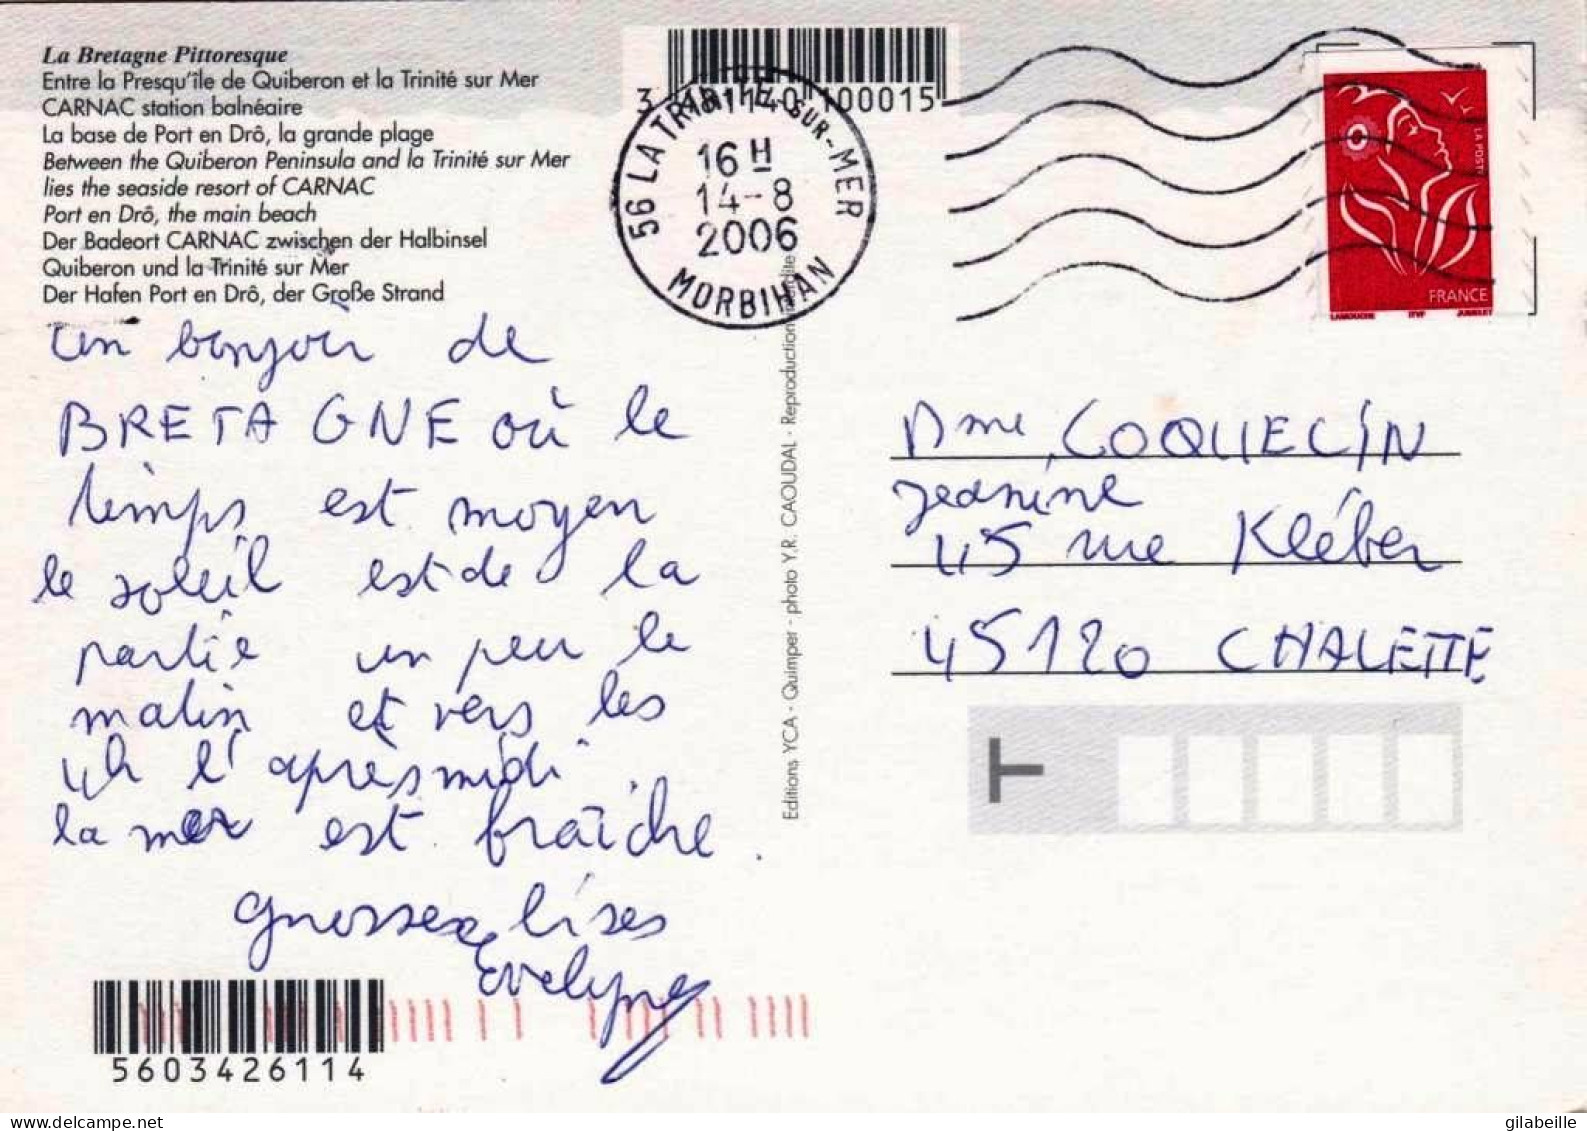 La Bretagne Pittoresque
Entre la Presqu'île de Quiberon et la Trinité sur Mer
CARNAC station balnéaire
La base de Port en Drô, la grande plage
Between the Quiberon Peninsula and la Trinité sur Mer
lies the seaside resort of CARNAC
Port en Drô, the main beach
Der Badeort CARNAC zwischen der Halbinsel
Quiberon und la Trinité sur Mer
Der Hafen Port en Drô, der Große Strand
56 LA TRINITE-SUR-MER
16 H
14-8
2006
MORBIHAN
LA POSTE
FRANCE
LAMOUCHE ITVF JUMELET
un bonjour de
BRETAGNE où le
temps est moyen
le soleil est de la
partie un peu le
matin et vers les
4h l'après midi.
la mer est fraîche.
grosses bises
Evelyne
Editions YCA - Quimper - photo Y.R. CAOUDAL - Reproduction interdite
Mme COQUELIN
Jeanine
45 rue Kléber
45120 CHALETTE
T
5603426114
gilabeille